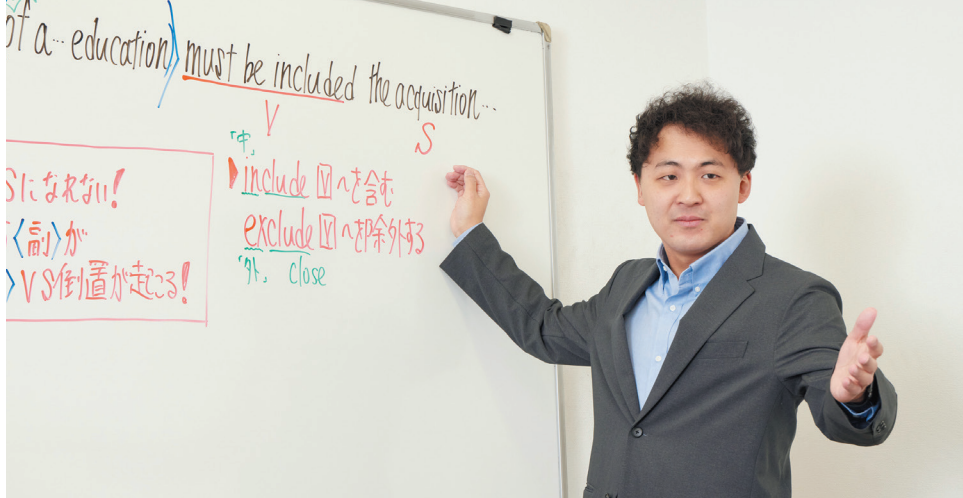 of a… education〉 must be included the acquisition…
V S
Sになれない!
〈副〉が
〉VS倒置が起こる!
「中」
▶include V 〜を含む
exclude V 〜を除外する
「外」 close